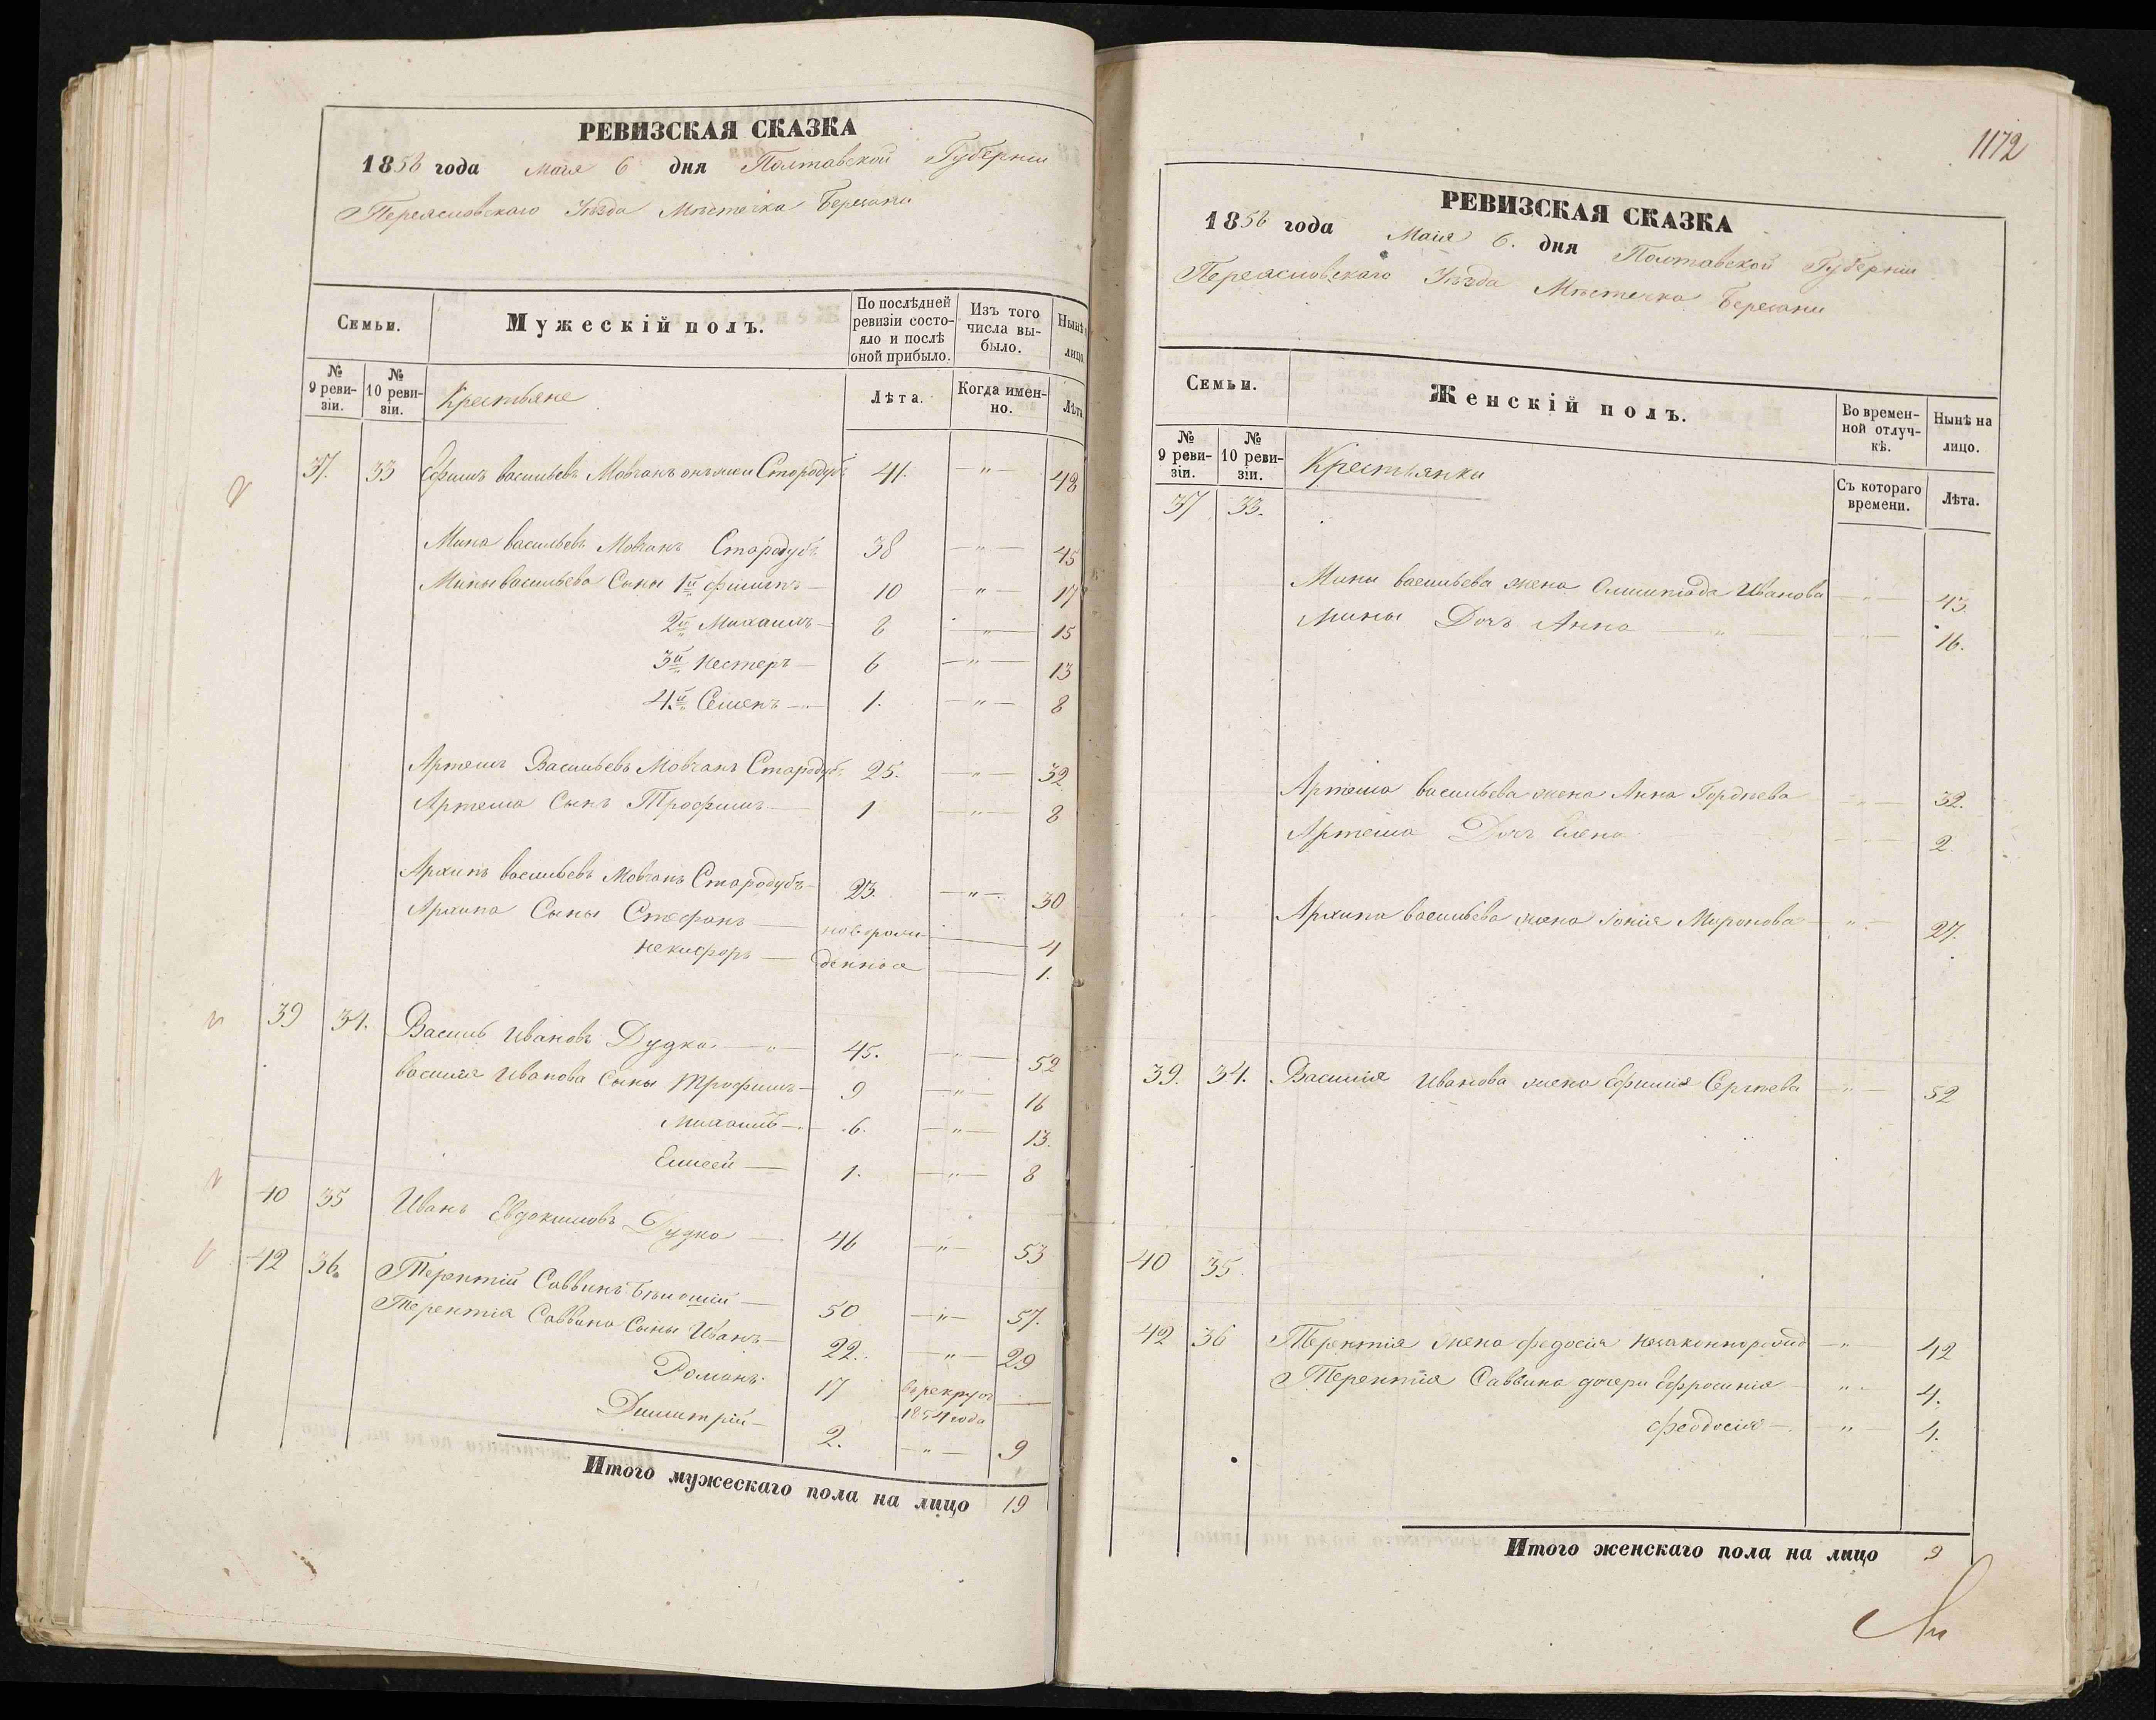 РЕВИЗСКАЯ СКАЗКА
1858 года Мая 6 дня Полтавской Губерніи
Переясловскаго Уѣзда Мѣстечка Березани
Семьи.
Мужескій полъ.
По послѣдней ревизіи состояло и послѣ оной прибыло.
Изъ того числа выбыло.
Нынѣ
лицо.
№ 9 ревизіи.
№ 10 ревизіи.
Крестьяне
Лѣта.
Когда именно.
Лѣта
37. 33 Ефимъ Васильевъ Мовчанъ онъ же и Стародубъ 41. —"— 48
Мина Васильевъ Мовчанъ Стародубъ 38 —"— 45
Мины Васильева Сыны 1й Филипъ — 10 —"— 17
2й Михаилъ — 8 —"— 15
3й Нестеръ — 6 —"— 13
4й Семенъ — 1. —"— 8
Артемъ Васильевъ Мовчанъ Стародубъ 25. —"— 32
Артема Сынъ Трофимъ — 1 —"— 8
Архипъ Васильевъ Мовчанъ Стародубъ — 23. —"— 30
Архипа Сыны Стефанъ — новорож 4
Никифоръ — денные 1.
39 34. Василь Ивановъ Дудка —"— 45. —"— 52
Василя Иванова Сыны Трофимъ — 9 —"— 16
Михаилъ — 6. —"— 13.
Елисей — 1. —"— 8
40 35 Иванъ Евдокимовъ Дудка — 46 —"— 53
42 36. Терентій Саввинъ — 50 —"— 57.
Терентія Саввина Сыны Иванъ — 22. —"— 29
Романъ 17 въ рекруты —
1854 года
Димитрій — 2. —"— 9
Итого мужескаго пола на лицо 19
1172
РЕВИЗСКАЯ СКАЗКА
1858 года Мая 6. дня Полтавской Губерніи
Переясловскаго Уѣзда Мѣстечка Березани
Семьи.
Женскій полъ.
Во временной отлучкѣ.
Нынѣ на лицо.
№ 9 ревизіи.
№ 10 ревизіи.
Крестьянки
Съ котораго времени.
Лѣта.
37 33.
Мины Васильева жена Олимпіада Иванова —"— 43.
Мины Дочь Анна —"— 16.
Артема Васильева жена Анна Гордѣева —"— 32.
Артема Дочь Елена —"— 2.
Архипа Васильева жена Миронова —"— 27.
39. 34. Василія Иванова жена Ефимія Сергѣева —"— 52
40 35.
42 36 Терентія жена Федосія незаконнорожд —"— 42
Терентія Саввина дочери Ефросинія —"— 4.
Феодосія — —"— 4.
Итого женскаго пола на лицо 9